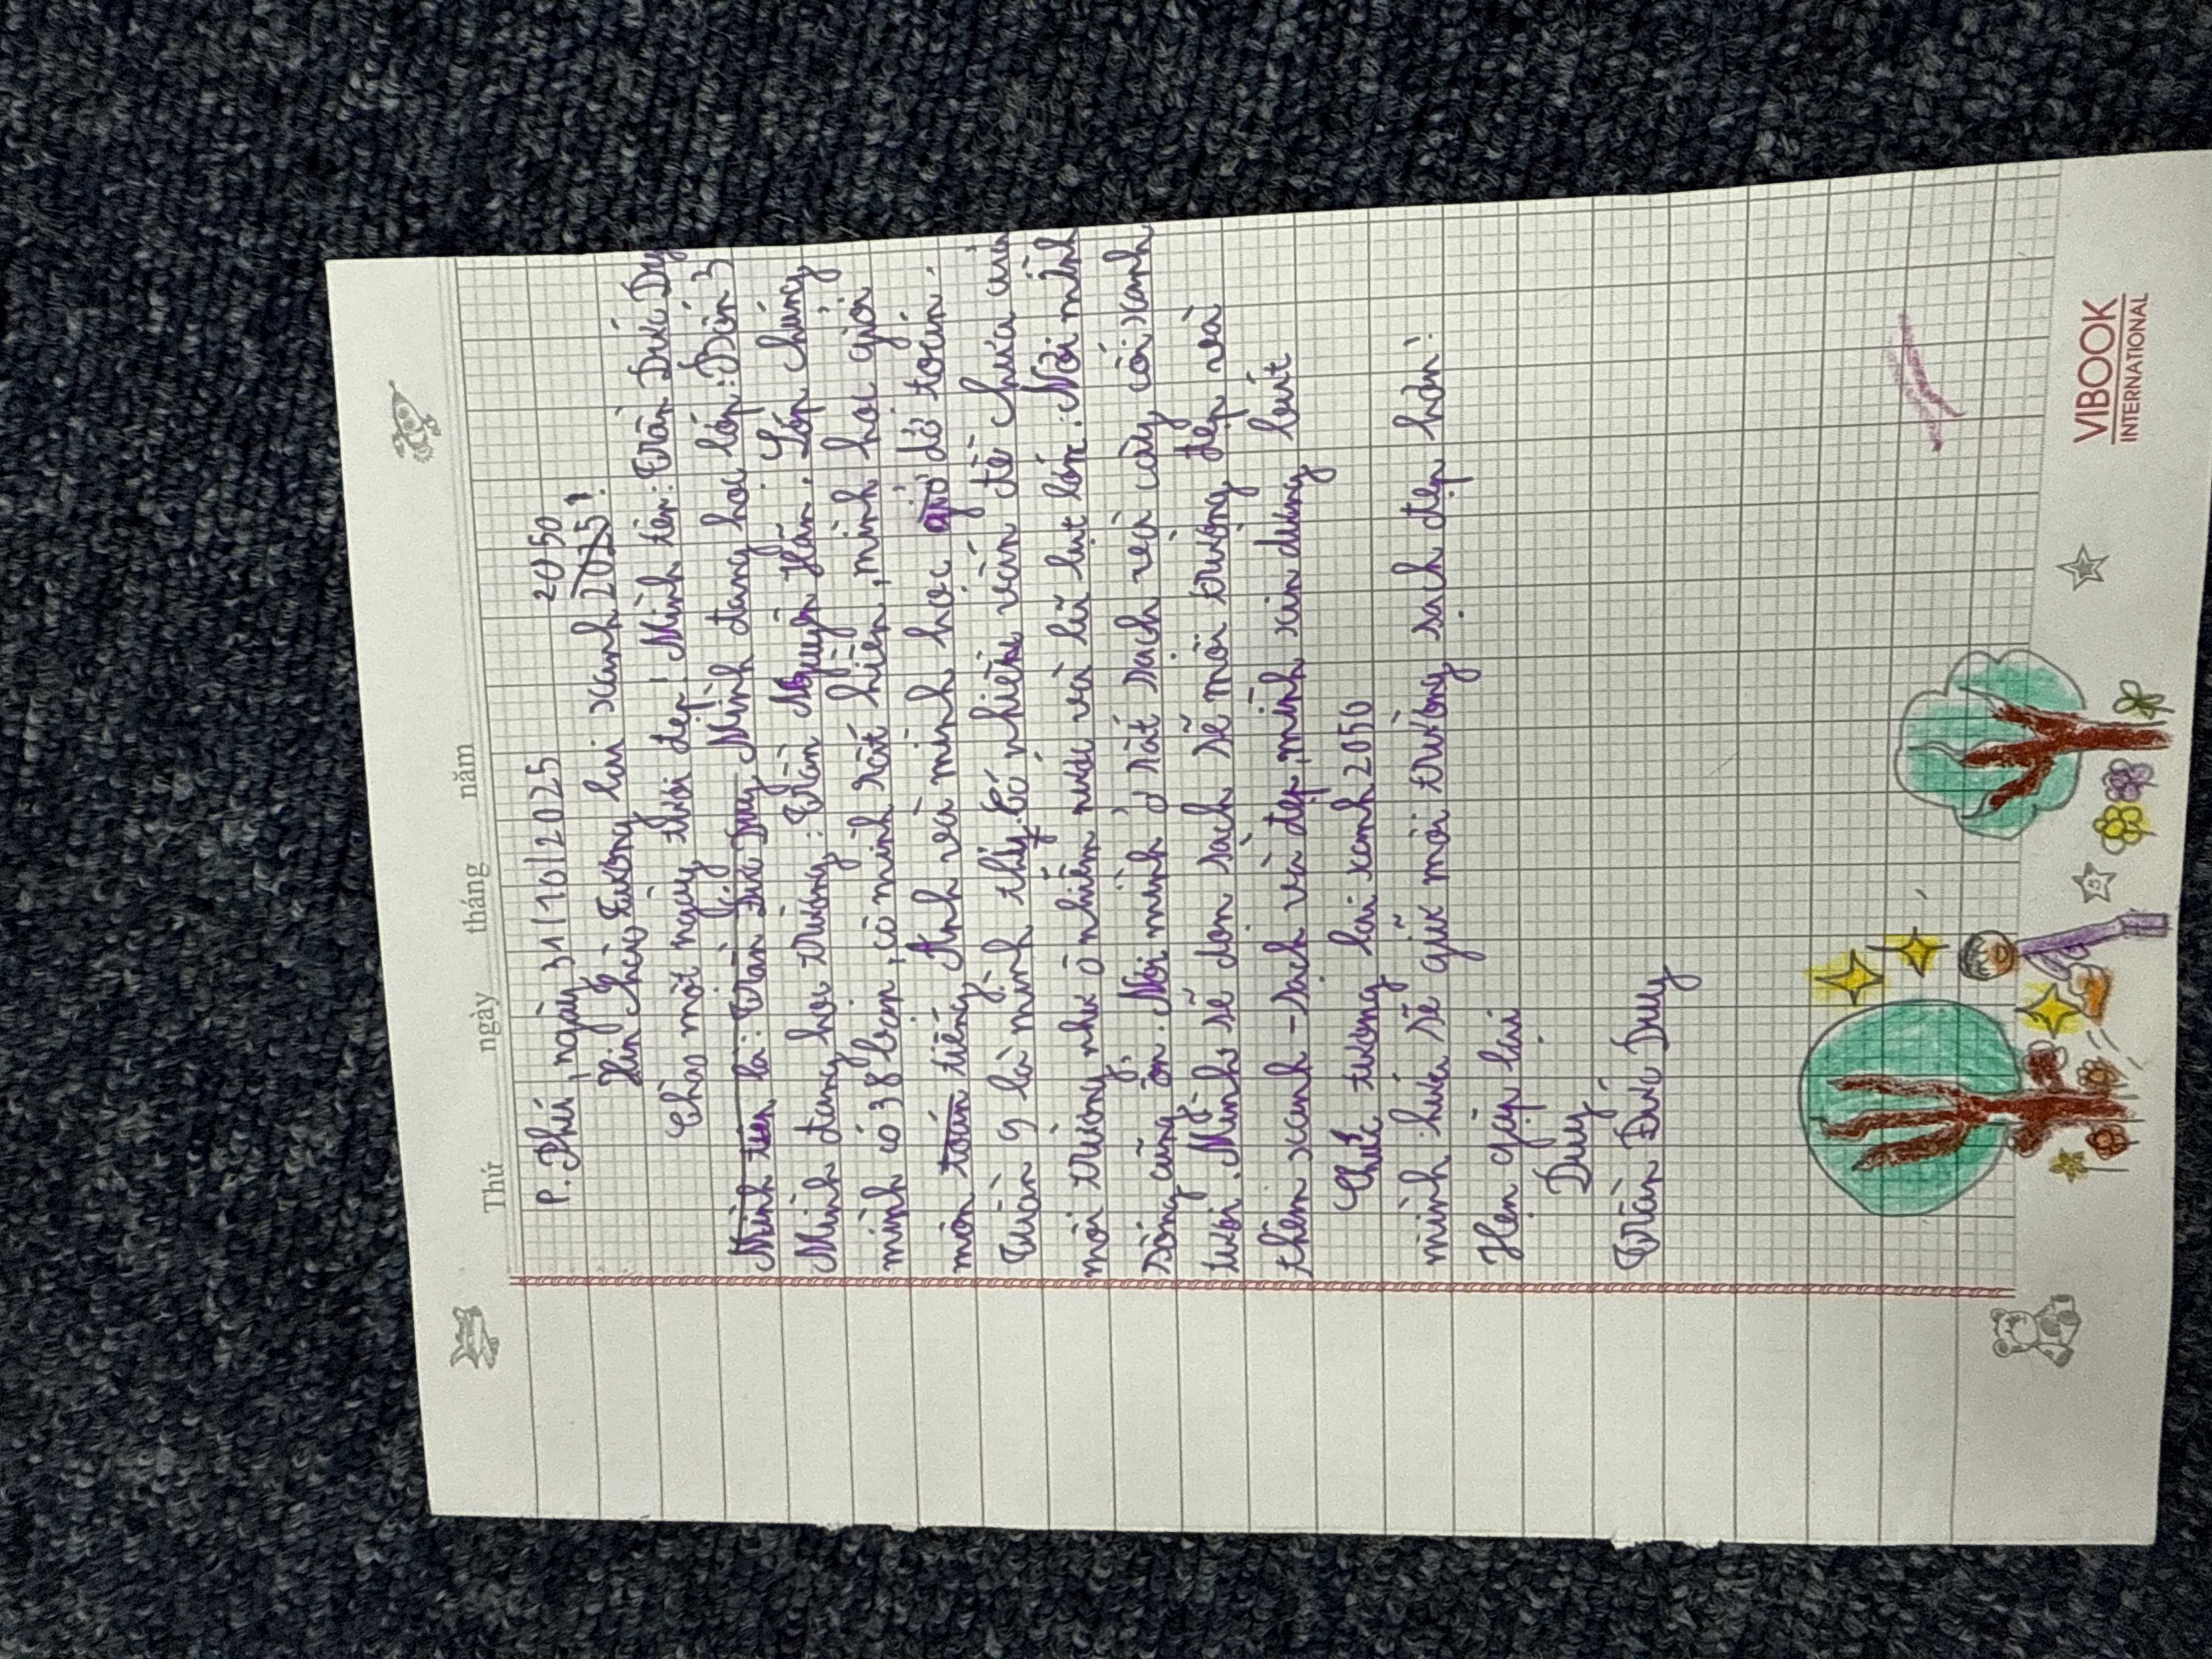 Thứ ngày tháng năm
P. Phú, ngày 31/10/2025
2050
Xin chào tương lai xanh 2025!
Chào một ngày tươi đẹp! Mình tên: Trần Đức Duy
Mình tên là: Trần Đức Duy Mình đang học lớp: Bốn 3
Mình đang học trường: Trần Nguyên Hãn. Lớp chúng
mình có 38 bạn, cô mình rất hiền, mình học giỏi
môn toán tiếng Anh và mình học dở toán.
Tuần 9 là mình thấy có nhiều vấn đề chưa
môi trường như ô nhiễm nước và lũ lụt lớn. Nơi mình
sống cũng ổn. Nơi mình ở rất sạch với cây cối xanh
tươi. Mình sẽ dọn sạch sẽ môi trường đẹp và
thêm xanh - sạch và đẹp, mình xin dừng bút
Chúc tương lai xanh 2050
mình hứa sẽ giữ môi trường sạch đẹp hơn!
Hẹn gặp lại
Duy
Trần Đức Duy
VIBOOK
INTERNATIONAL